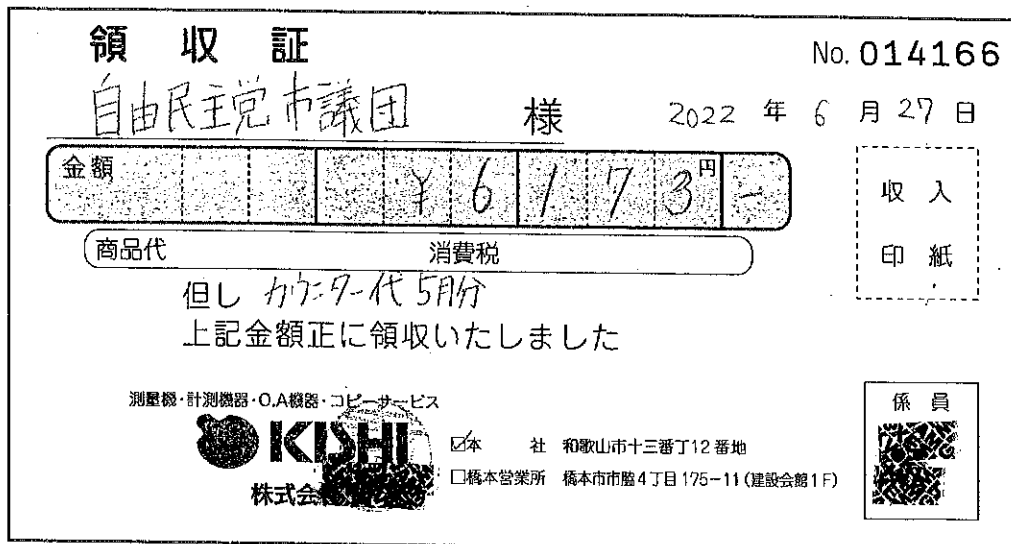 領収証
No. 014166
自由民主党市議団 様
2022 年 6 月 27 日
金額 ¥6173円-
収入
印紙
商品代 消費税
但し カウンター代 5月分
上記金額正に領収いたしました
測量機・計測機器・O.A機器・コピーサービス
KISHI
株式会
☑本 社 和歌山市十三番丁12番地
☐橋本営業所 橋本市市脇4丁目175-11(建設会館1F)
係員